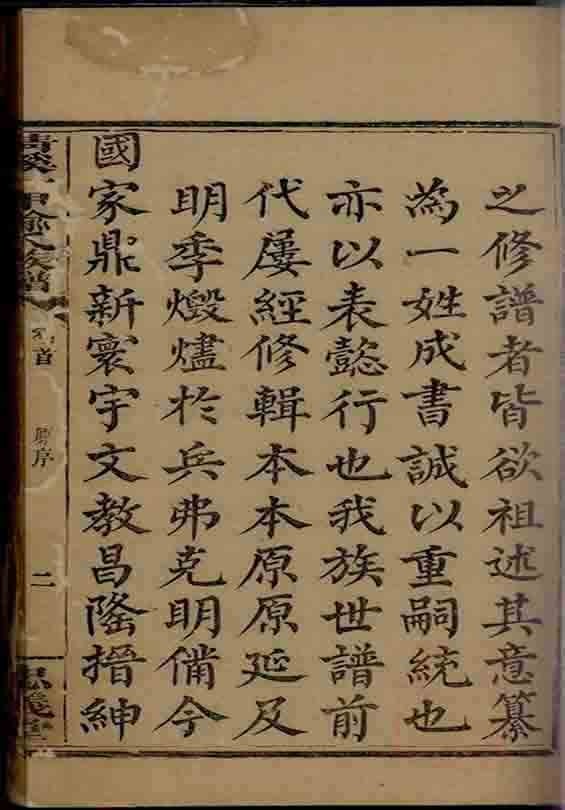 之修譜者皆欲祖述其意纂
為一姓成書誠以重嗣統也
亦以表懿行也我族世譜前
代屢經修輯本本原原延及
明季燬燼於兵弗克明備今
國家鼎新寰宇文教昌隆搢紳
族譜
首
序
二